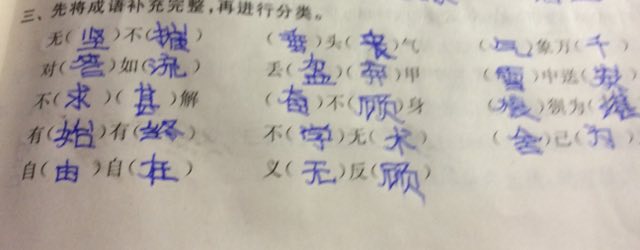 三、先将成语补充完整,再进行分类。
无(坚)不(摧) (垂)头(丧)气 (气)象万(千)
对(答)如(流) 丢(盔)(弃)甲 (雪)中送(炭)
不(求)(甚)解 (奋)不(顾)身 (狼)狈为
有(始)有(终) 不(学)无(术) (舍)己(为)
自(由)自(在) 义(无)反(顾)